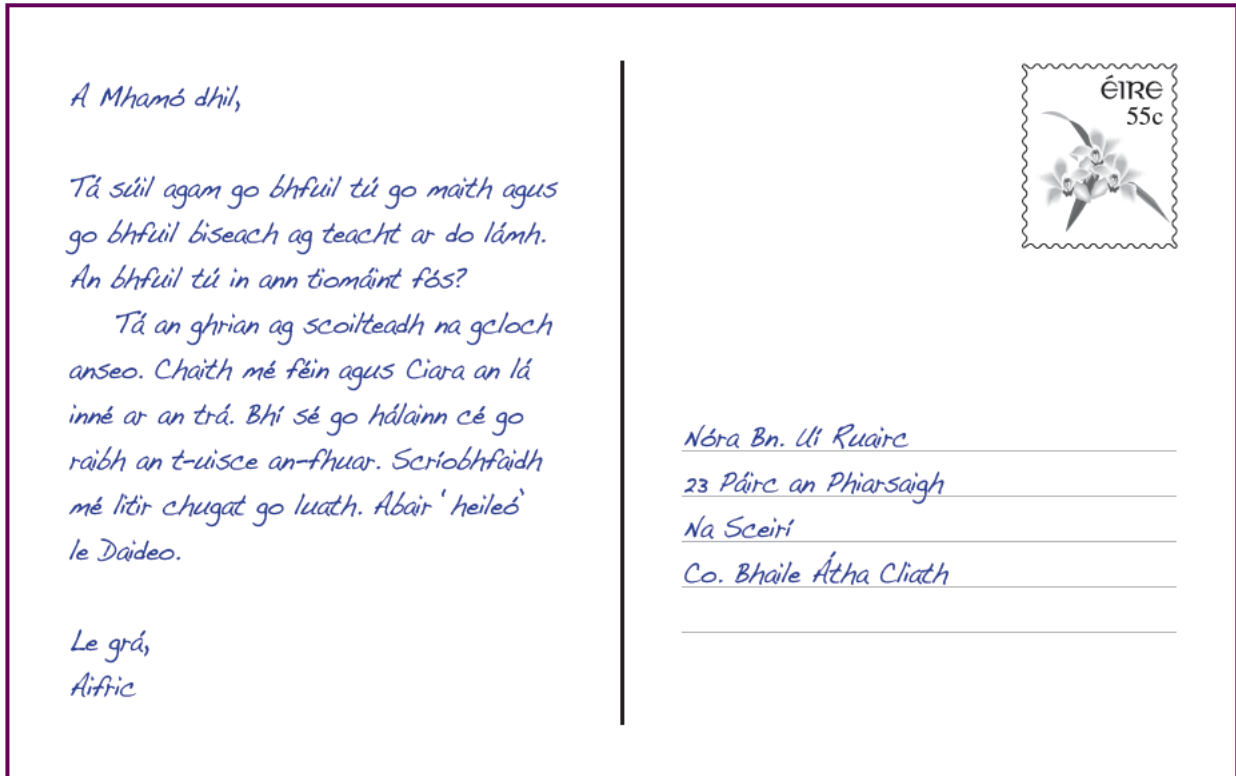 A Mhamó dhil,
Tá súil agam go bhfuil tú go maith agus
go bhfuil biseach ag teacht ar do lámh.
An bhfuil tú in ann tiomáint fós?
Tá an ghrian ag scoilteadh na gcloch
anseo. Chaith mé féin agus Ciara an lá
inné ar an trá. Bhí sé go hálainn cé go
raibh an t-uisce an-fhuar. Scríobhfaidh
mé litir chugat go luath. Abair ‘heileó‛
le Daideo.
Le grá,
Aifric
ÉIRE
55c
Nóra Bn. Uí Ruairc
23 Páirc an Phiarsaigh
Na Sceirí
Co. Bhaile Átha Cliath